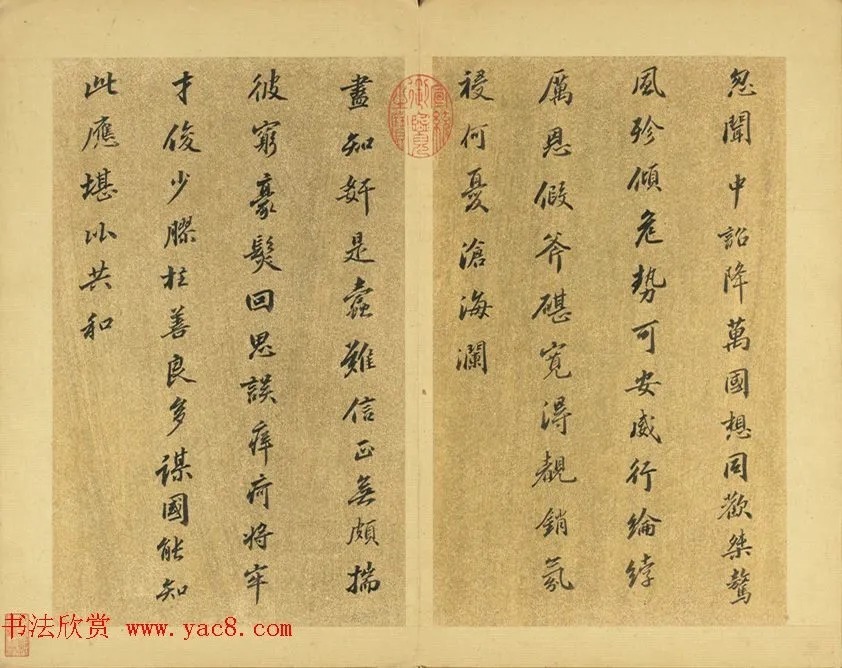 忽聞中詔降萬國想同歡桀驁
風殄傾危勢可安威行綸綍
厲恩假斧碪寬淂覩銷氛
祲何憂滄海瀾
盡知奸是蠹難信正無頗揣
彼窮豪髮回思誤痒疴將牢
才俊少膠柱善良多謀國能知
此應堪以共和
书法欣赏 www.yac8.com